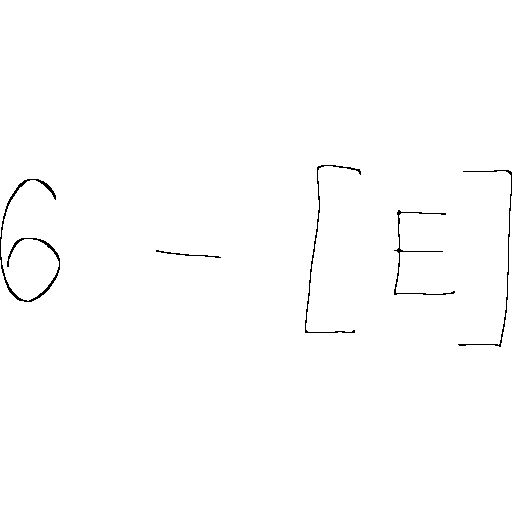 6 - [E]